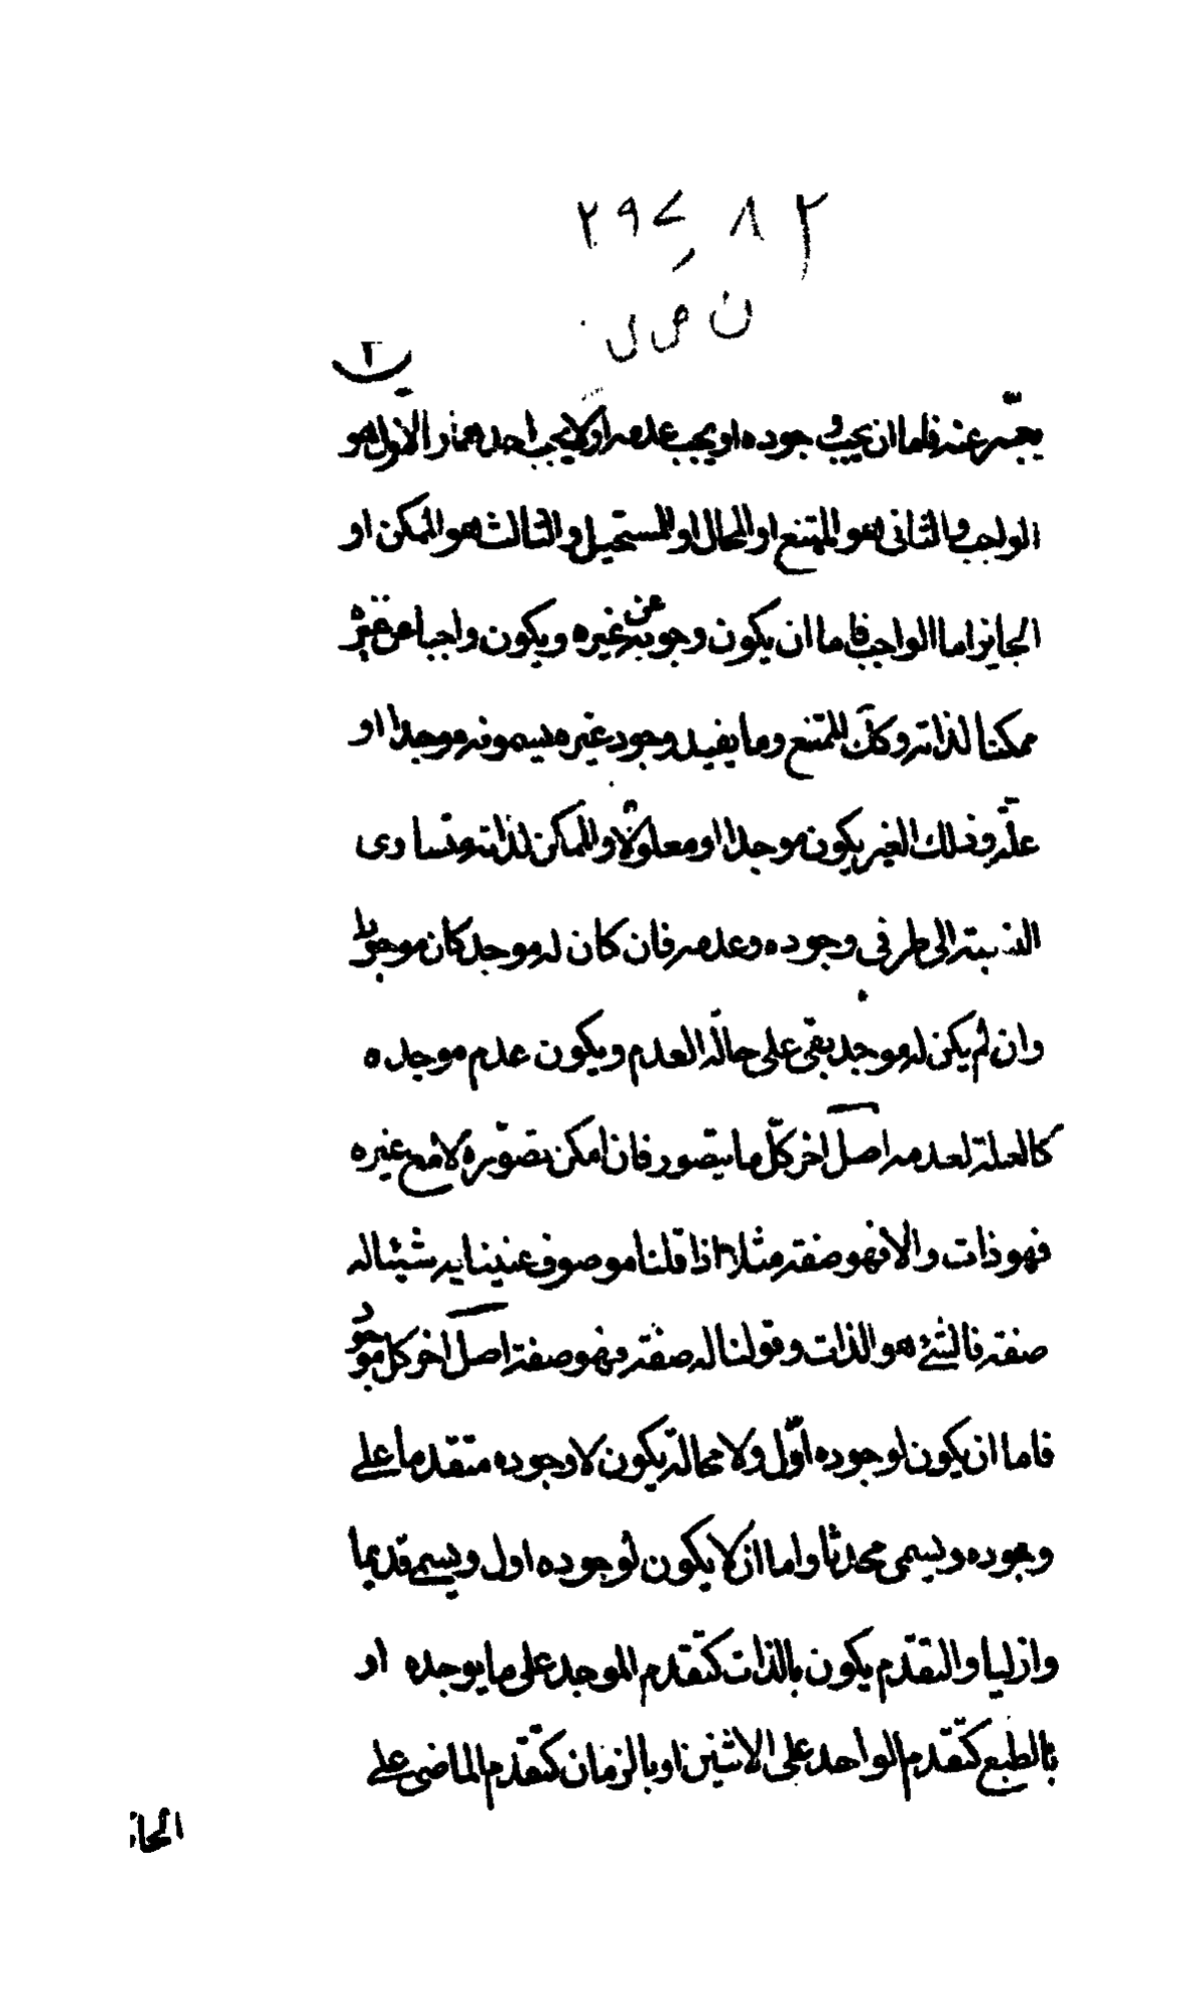 ٢ ٨ ٢٩٧
ن ص ل
٢
يعبّر عنه فاما ان يجب وجوده او يجب عدمه او لا يجب احدهما والاول هو
الواجب والثانى هو الممتنع او المحال او المستحيل والثالث هو الممكن او
الجايز اما الواجب فاما ان يكون وجوبه عن غيره ويكون واجبا عن غيره
ممكنا لذاته وكك الممتنع وما يفيد وجود غيره يسمونه موجدا او
علّة وذلك الغير يكون موجدا او معلولا والممكن لذاته متساوى
النسبة الى طرفى وجوده وعدمه فان كان له موجد كان موجودا
وان لم يكن له موجد بقى على حالة العدم ويكون عدم موجده
كالعلة لعدمه اصل اخر كلّ ما يتصور فان امكن تصوّره لا مع غيره
فهو ذات والا فهو صفة مثلا اذا قلنا موصوف عنينا به شيئا له
صفة فالشئ هو الذات وقولنا له صفة فهو صفة اصل اخر كل موجود
فاما ان يكون لوجوده اوّل ولا محالة يكون لا وجوده متقدما على
وجوده ويسمى محدثا واما ان لا يكون لوجوده اول ويسمى قديما
وازليا والتقدّم يكون بالذات كتقدم الموجد على ما يوجده او
بالطبع كتقدم الواحد على الاثنين او بالزمان كتقدم الماضى على